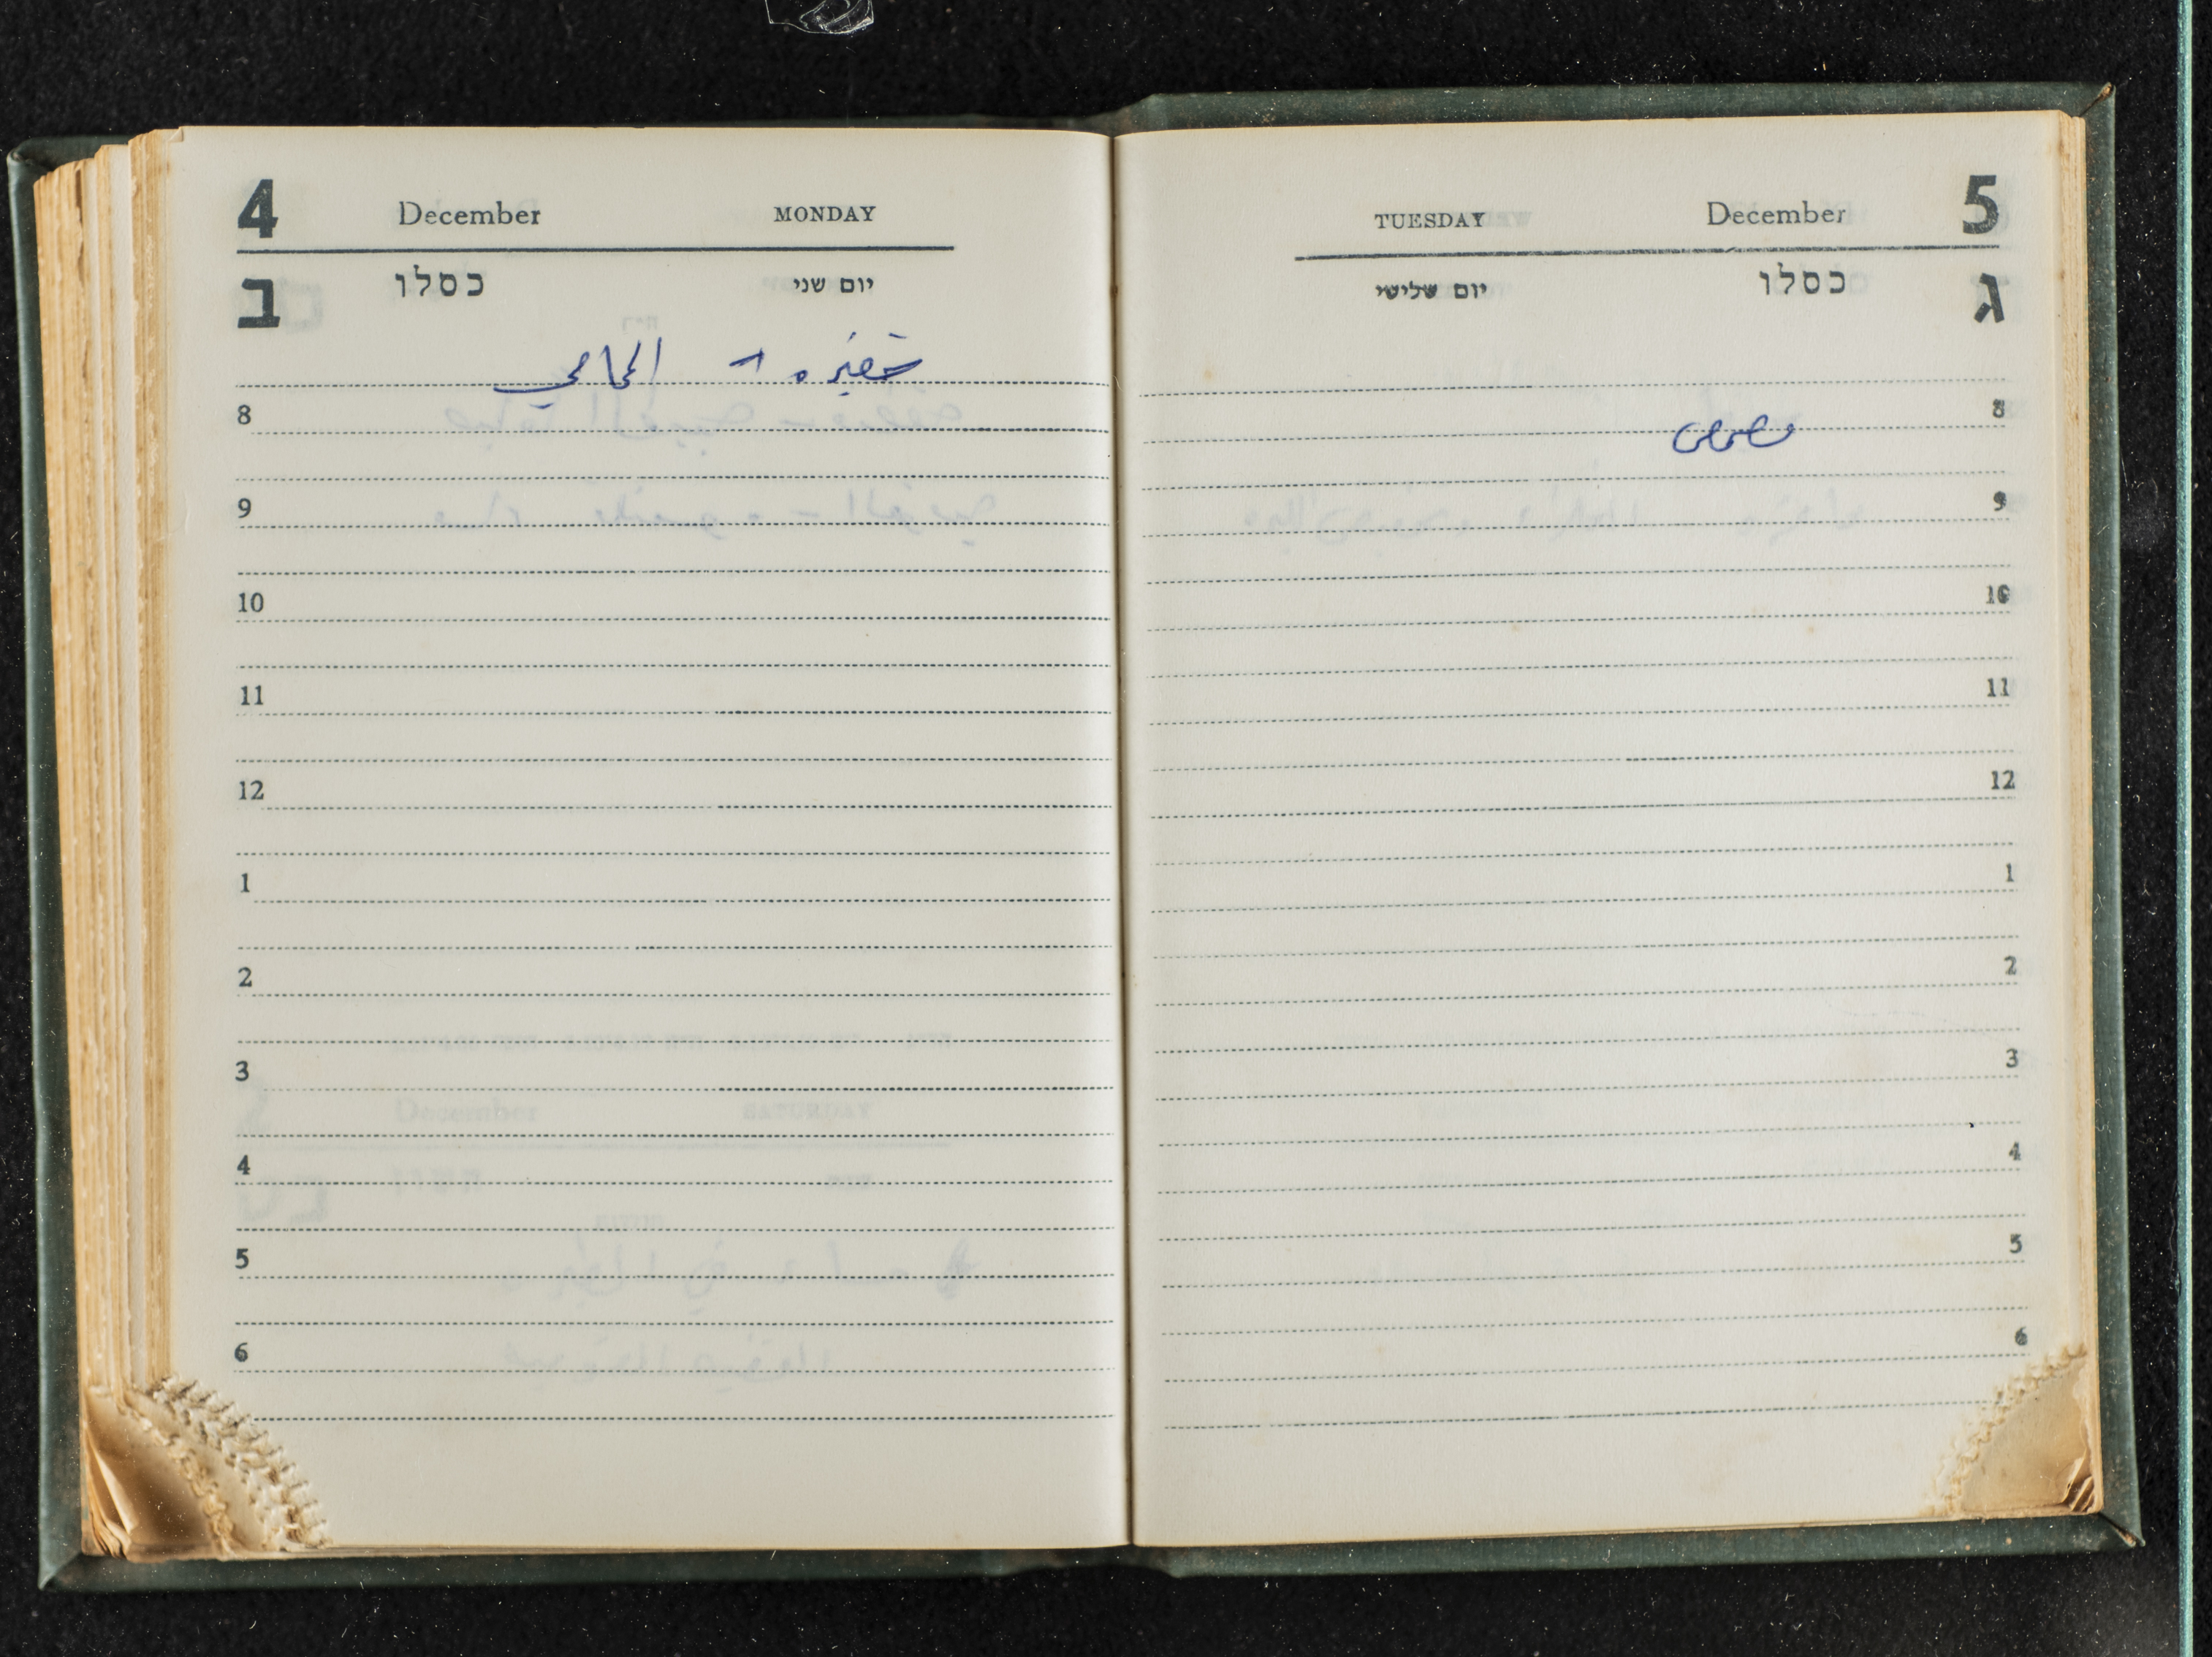 4 December MONDAY
ב כסלו יום שני
المحامي
8
9
10
11
12
1
2
3
4
5
6
TUESDAY December 5
יום שלישי כסלו ג
8
9
10
11
12
1
2
3
4
5
6